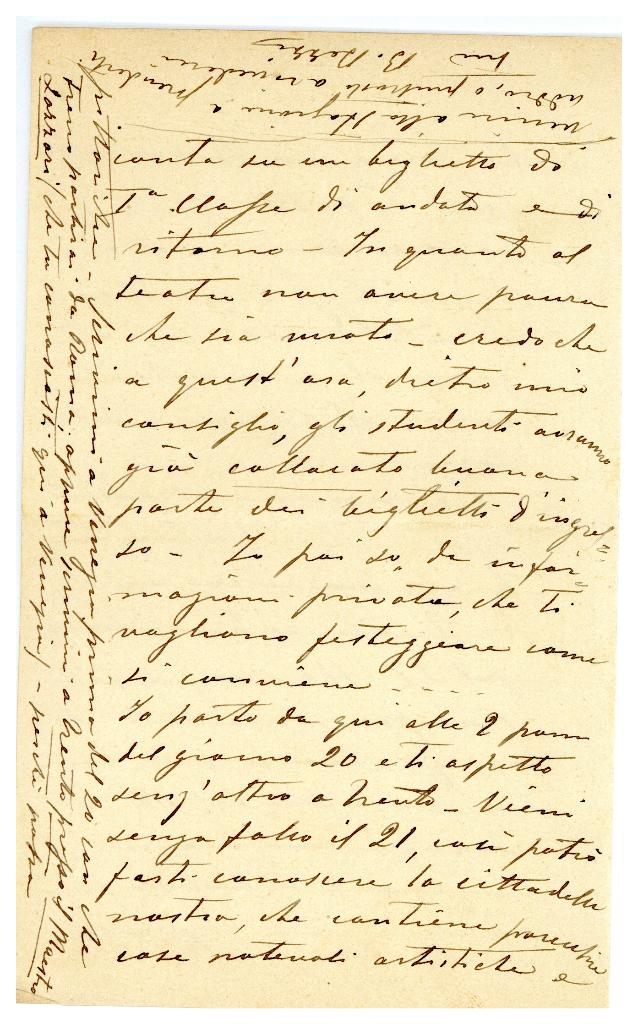 conto su un biglietto di
Iª classe di andata e di
ritorno – In quanto al
teatro non avere paura
che sia vuoto – credo che
a quest'ora, dietro mio
consiglio, gli studenti avranno
già collocato buona
parte dei biglietti d'ingres-
so – Io poi so, da infor-
mazioni private, che ti
vogliono festeggiare come
si conviene ----
Io parto da qui alle 2 pom
del giorno 20 e ti aspetto
senz'altro a Trento – Vieni
senza fallo il 21, così potrò
farti conoscere la cittadella
nostra, che contiene parecchie
cose notevoli artistiche e
pittoriche – Scrivimi a Venezia prima del 20 con che
treno partirai da Roma; oppure scrivimi a Trento presso il Maestro
(che tu conoscesti qui a Venezia) –
alla Stazione a
o piuttosto a rivederci
tuo B.